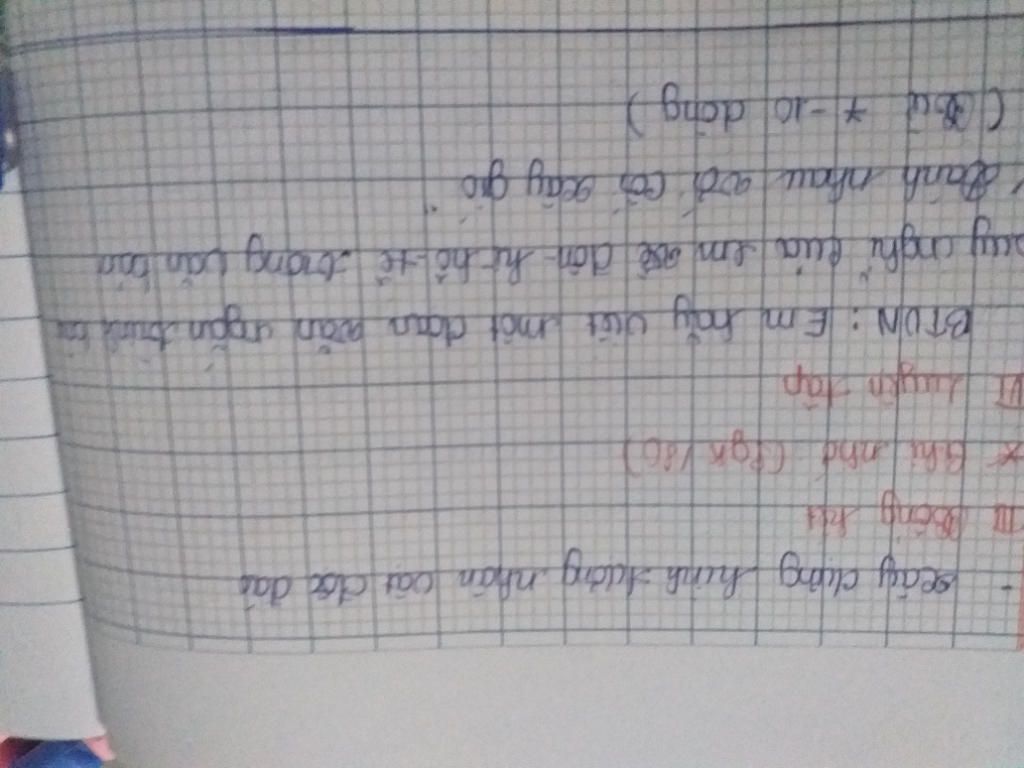 - xây dựng hình tượng nhân vật độc đáo
III Tổng kết
* Ghi nhớ (sgk/80)
VI Luyện tập
BTVN: Em hãy viết một đoạn văn ngắn trình bà
uy nghĩ của em về đôn-ki-hô-tê trong văn bản
Đánh nhau với cối xây gió
( từ 7-10 dòng)